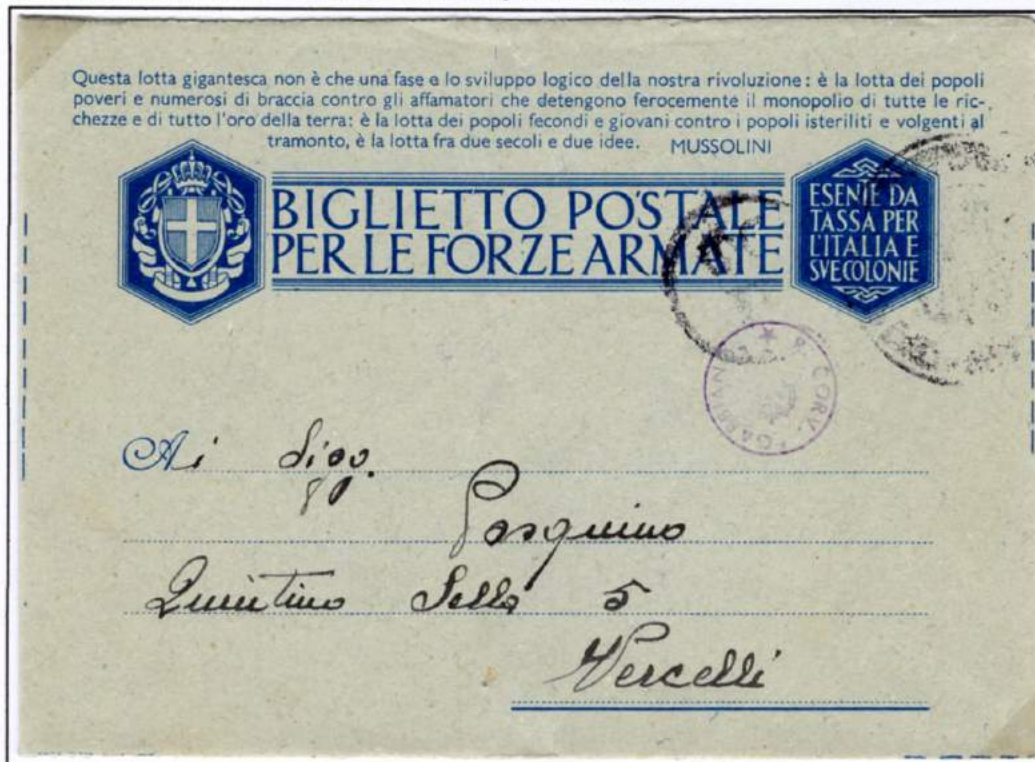 Questa lotta gigantesca non è che una fase e lo sviluppo logico della nostra rivoluzione: è la lotta dei popoli
poveri e numerosi di braccia contro gli affamatori che detengono ferocemente il monopolio di tutte le ric-
chezze e di tutto l'oro della terra: è la lotta dei popoli fecondi e giovani contro i popoli isteriliti e volgenti al
tramonto, è la lotta fra due secoli e due idee. MUSSOLINI
BIGLIETTO POSTALE
PER LE FORZE ARMATE
ESENTE DA
TASSA PER
L'ITALIA E
SVE COLONIE
R. CORV. GABBIANO
Ai Sigg.
Pasquino
Quintino Sella 5
Vercelli